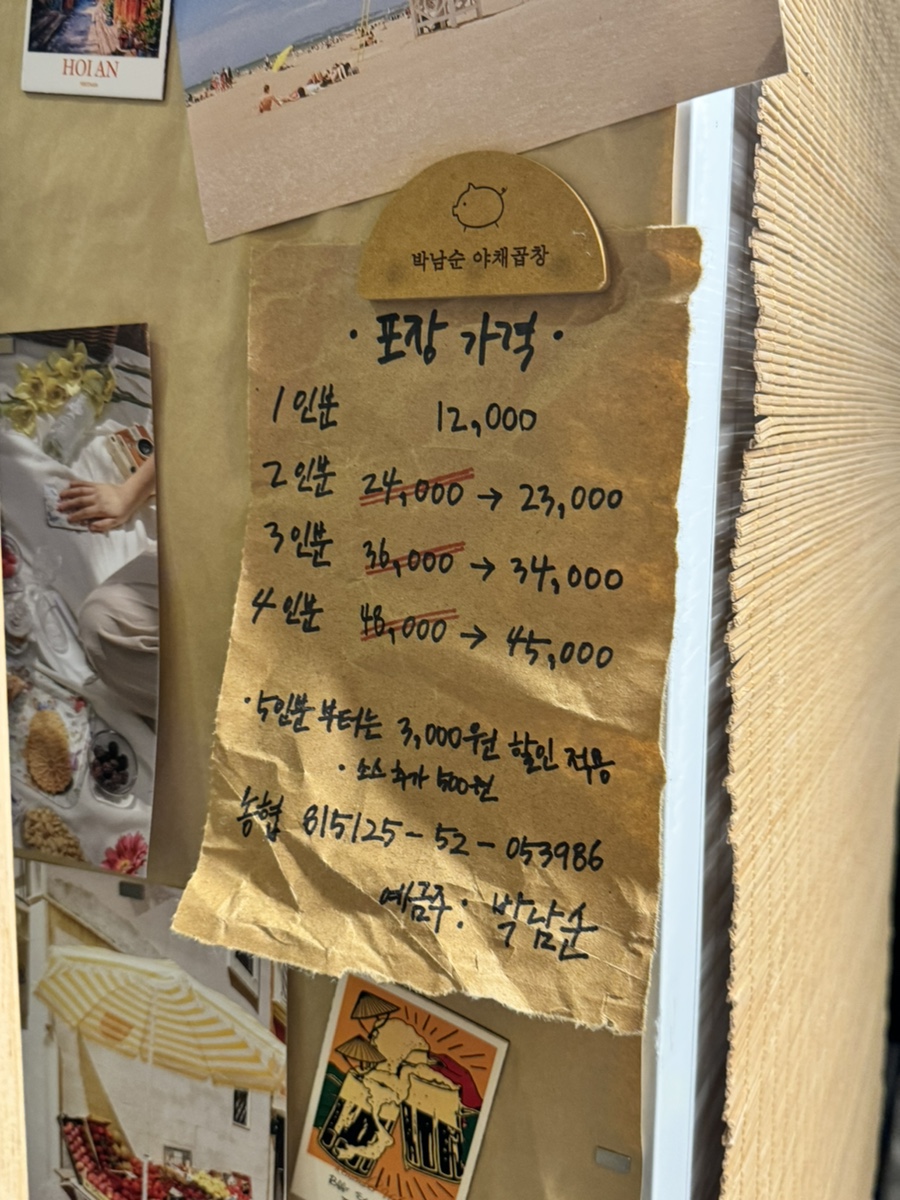 HOI AN
박남순 야채곱창
· 포장 가격 ·
1인분 12,000
2인분 24,000 → 23,000
3인분 36,000 → 34,000
4인분 48,000 → 45,000
· 5인분 부터는 3,000원 할인 적용
· 소스 추가 500원
농협 815125-52-053986
예금주 : 박남순